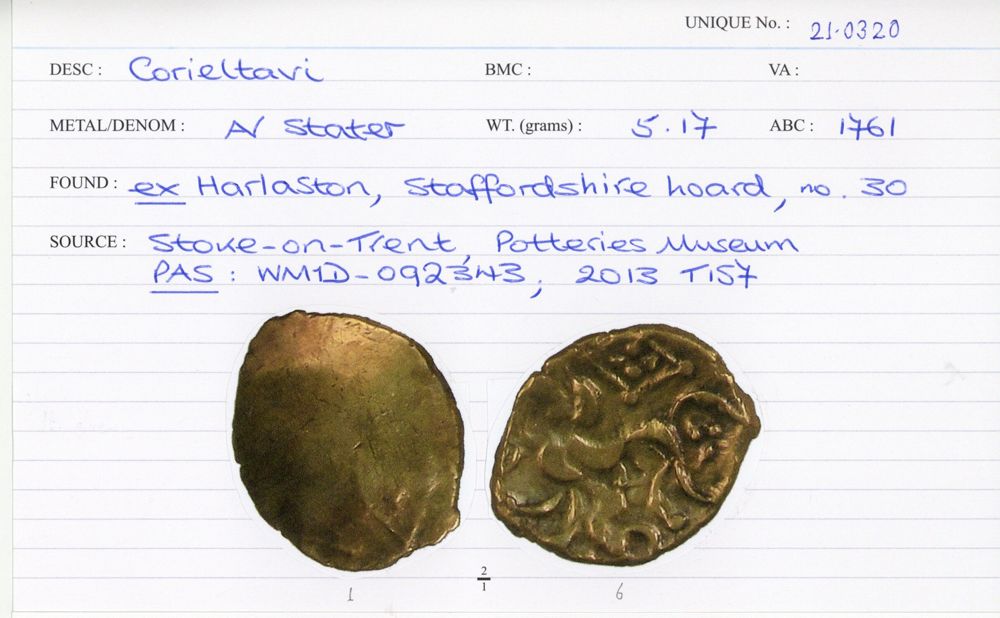 UNIQUE No. : 21.0320
DESC : Corieltavi BMC : VA :
METAL/DENOM : AV Stater WT. (grams) : 5.17 ABC : 1761
FOUND : ex Harlaston, Staffordshire hoard, no. 30
SOURCE : Stoke-on-Trent, Potteries Museum
PAS : WMID-092343, 2013 T157
2
1
1 6